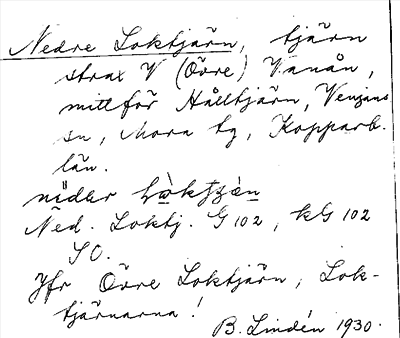 Nedre Loktjärn, tjärn
strax V (Övre) Vanån,
mittför Hålltjärn, Venjans
sn, Mora tg, Kopparb.
län.
Ned. Loktj. G 102, kG 102
SO.
Jfr Övre Loktjärn, Lok-
tjärnarna!
B. Lindén 1930.